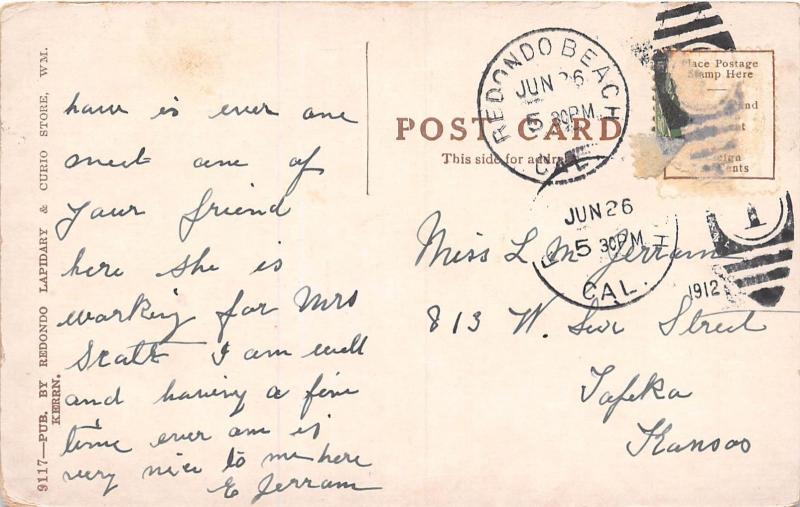 9117—PUB. BY REDONDO LAPIDARY & CURIO STORE, WM. KERRN.
haw is ever one
meet one of
your friend
here she is
working for Mrs
Scatt I am well
and having a fine
time ever one is
very nice to me here
E Jerram
POST CARD
This side for address
REDONDO BEACH
JUN 26
5 30PM
CAL.
Place Postage
Stamp Here
JUN 26
5 30PM
CAL.
1912
1
Miss L M Jerram
813 W. Street
Tapeka
Kansas